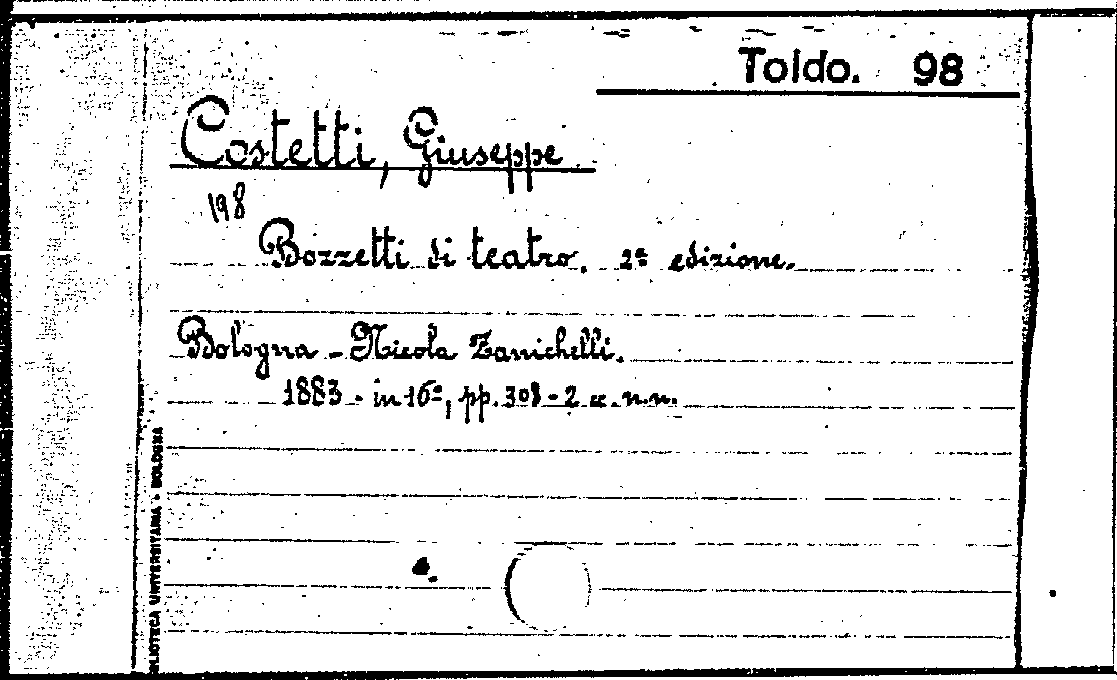 Toldo. 98
Costetti, Giuseppe
198
Bozzetti di teatro. 2ª edizione.
Bologna - Nicola Zanichelli.
1883 - in 16º, pp. 308 - 2 c. n.n.
BLIOTECA UNIVERSITARIA - BOLOGNA